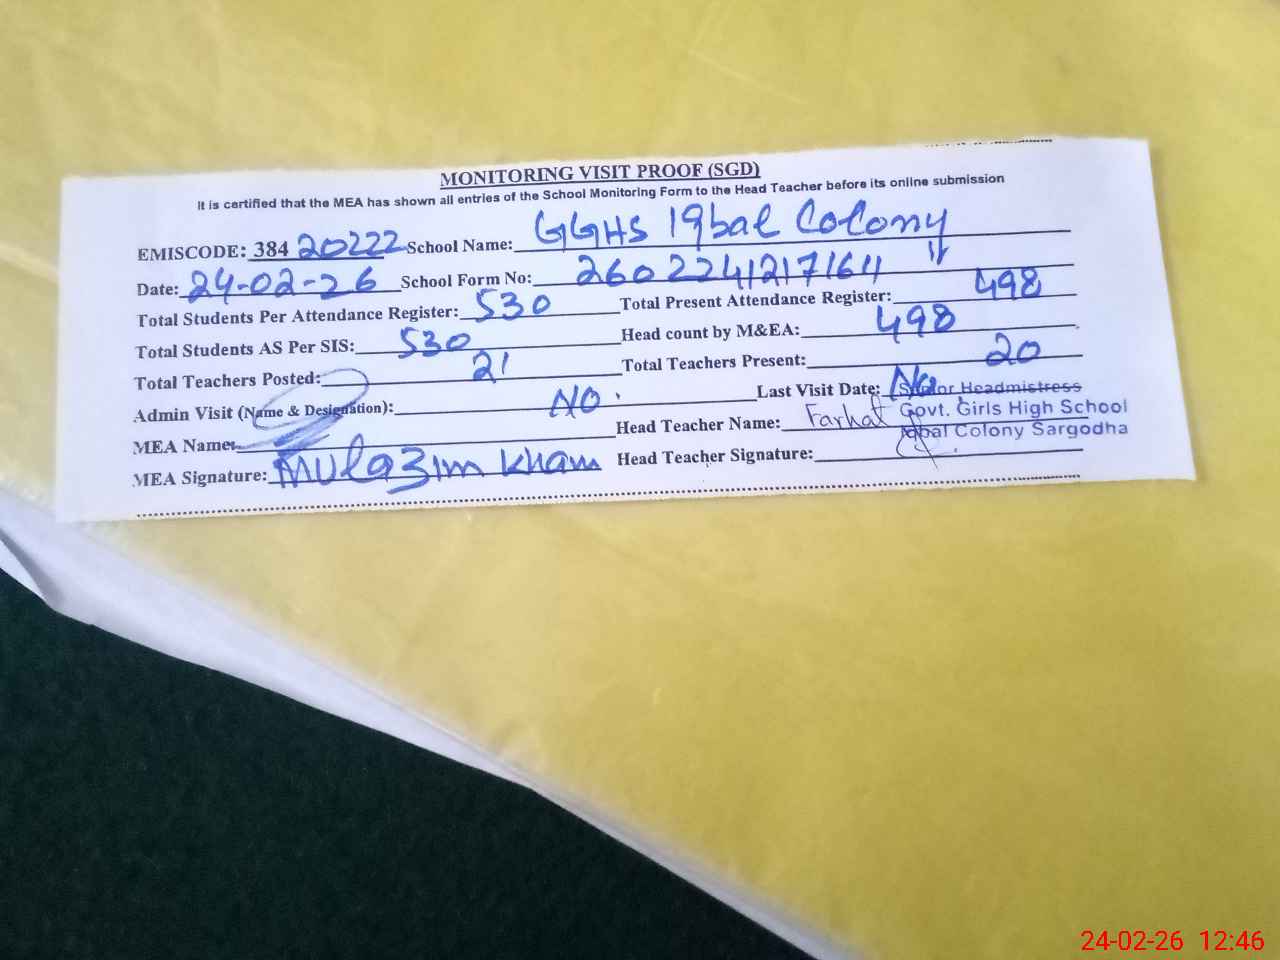 MONITORING VISIT PROOF (SGD)
It is certified that the MEA has shown all entries of the School Monitoring Form to the Head Teacher before its online submission
EMISCODE: 384 20222 School Name: GGHS Iqbal Colony
Date: 24-02-26 School Form No: 26022412171611
Total Students Per Attendance Register: 530 Total Present Attendance Register: 498
Total Students AS Per SIS: 530 Head count by M&EA: 498
Total Teachers Posted: 21 Total Teachers Present: 20
Admin Visit (Name & Designation): NO Last Visit Date: No
Senior Headmistress
MEA Name: Head Teacher Name: Farhat
Govt. Girls High School
Iqbal Colony Sargodha
MEA Signature: Mulazim Khan Head Teacher Signature:
24-02-26 12:46